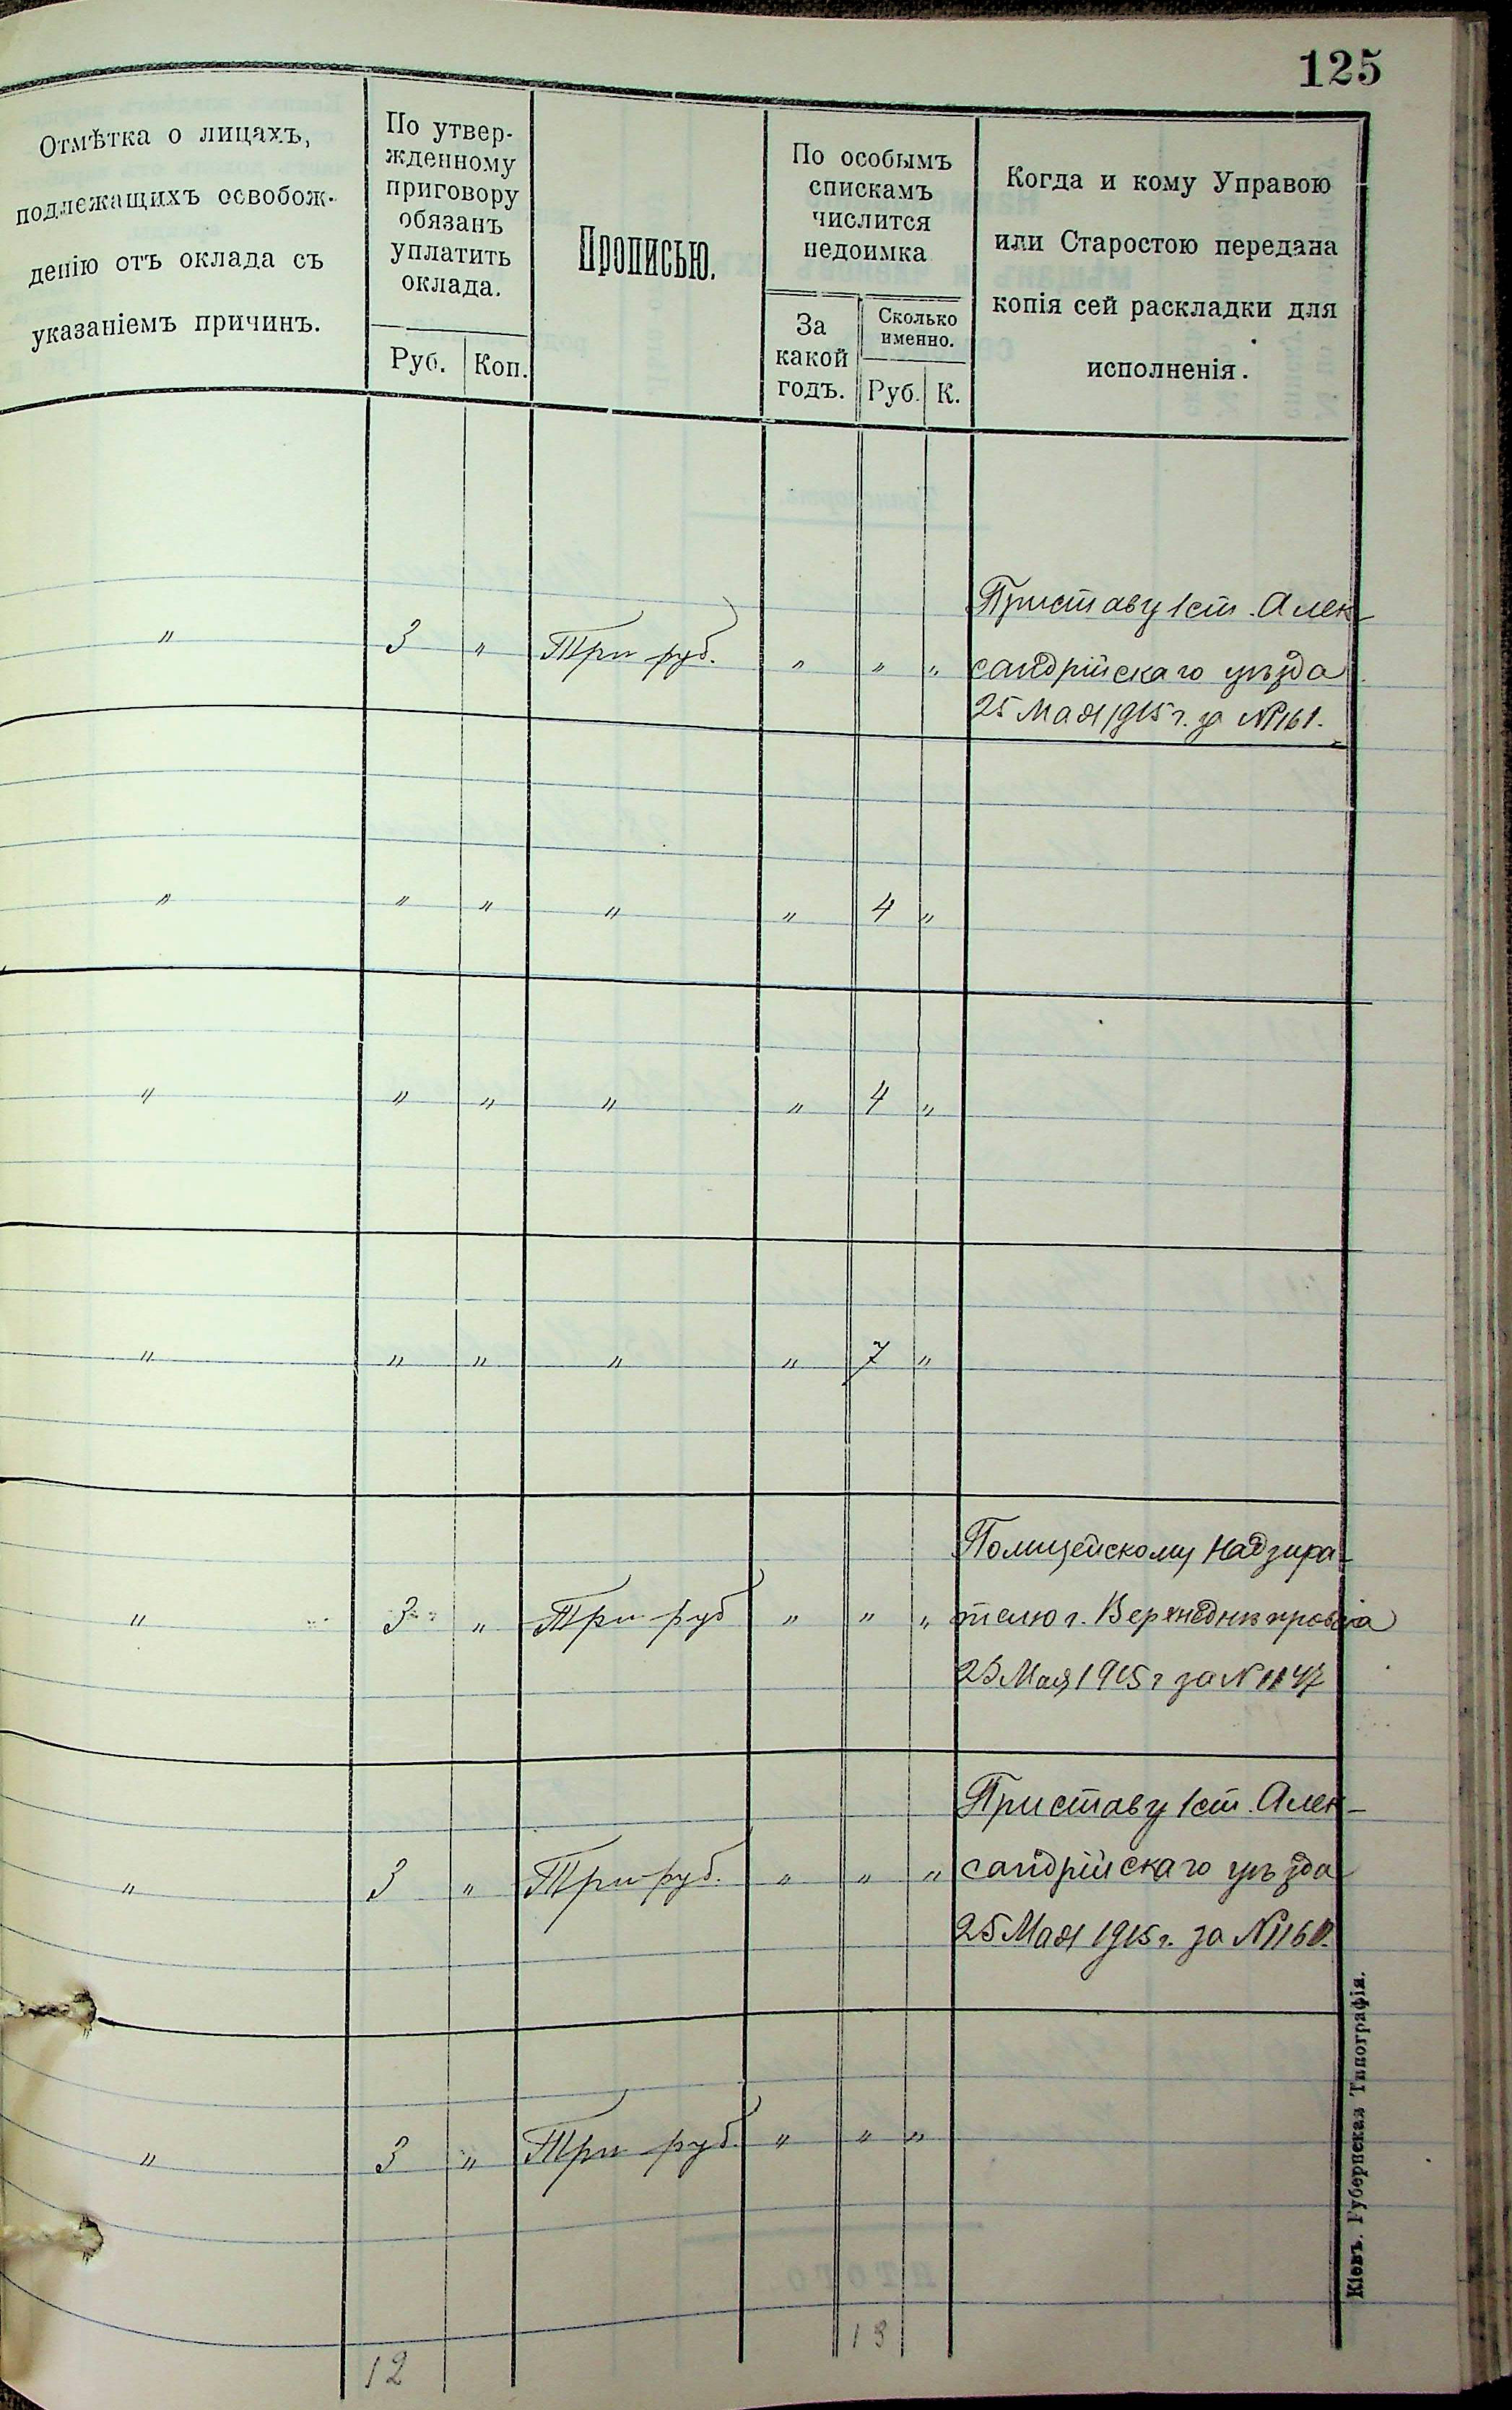 125
Отмѣтка о лицахъ,
подлежащихъ освобож-
денію отъ оклада съ
указаніемъ причинъ.
По утвер-
жденному
приговору
обязанъ
уплатить
оклада.
Руб. Коп.
Прописью.
По особымъ
спискамъ
числится
недоимка
За
какой
годъ.
Сколько
именно.
Руб. К.
Когда и кому Управою
или Старостою передана
копія сей раскладки для
исполненія.
Приставу 1 ст. Алек-
" 3 " Три руб. " " " сандрійскаго уѣзда
25 Мая 1915 г. за № 1161.
" " " " " 4 "
" " " " " 4 "
" " " " " 7 "
Полицейскому Надзира-
" 3 " Три руб " " " телю г. Верхнеднѣпровска
23 Мая 1915 г за № 1147
Приставу 1 ст. Алек-
" 3 " Три руб. " " " сандрійскаго уѣзда
25 Мая 1915 г. за №
" 3 " Три руб. " " "
12 13
Кіевъ. Губернская Типографія.